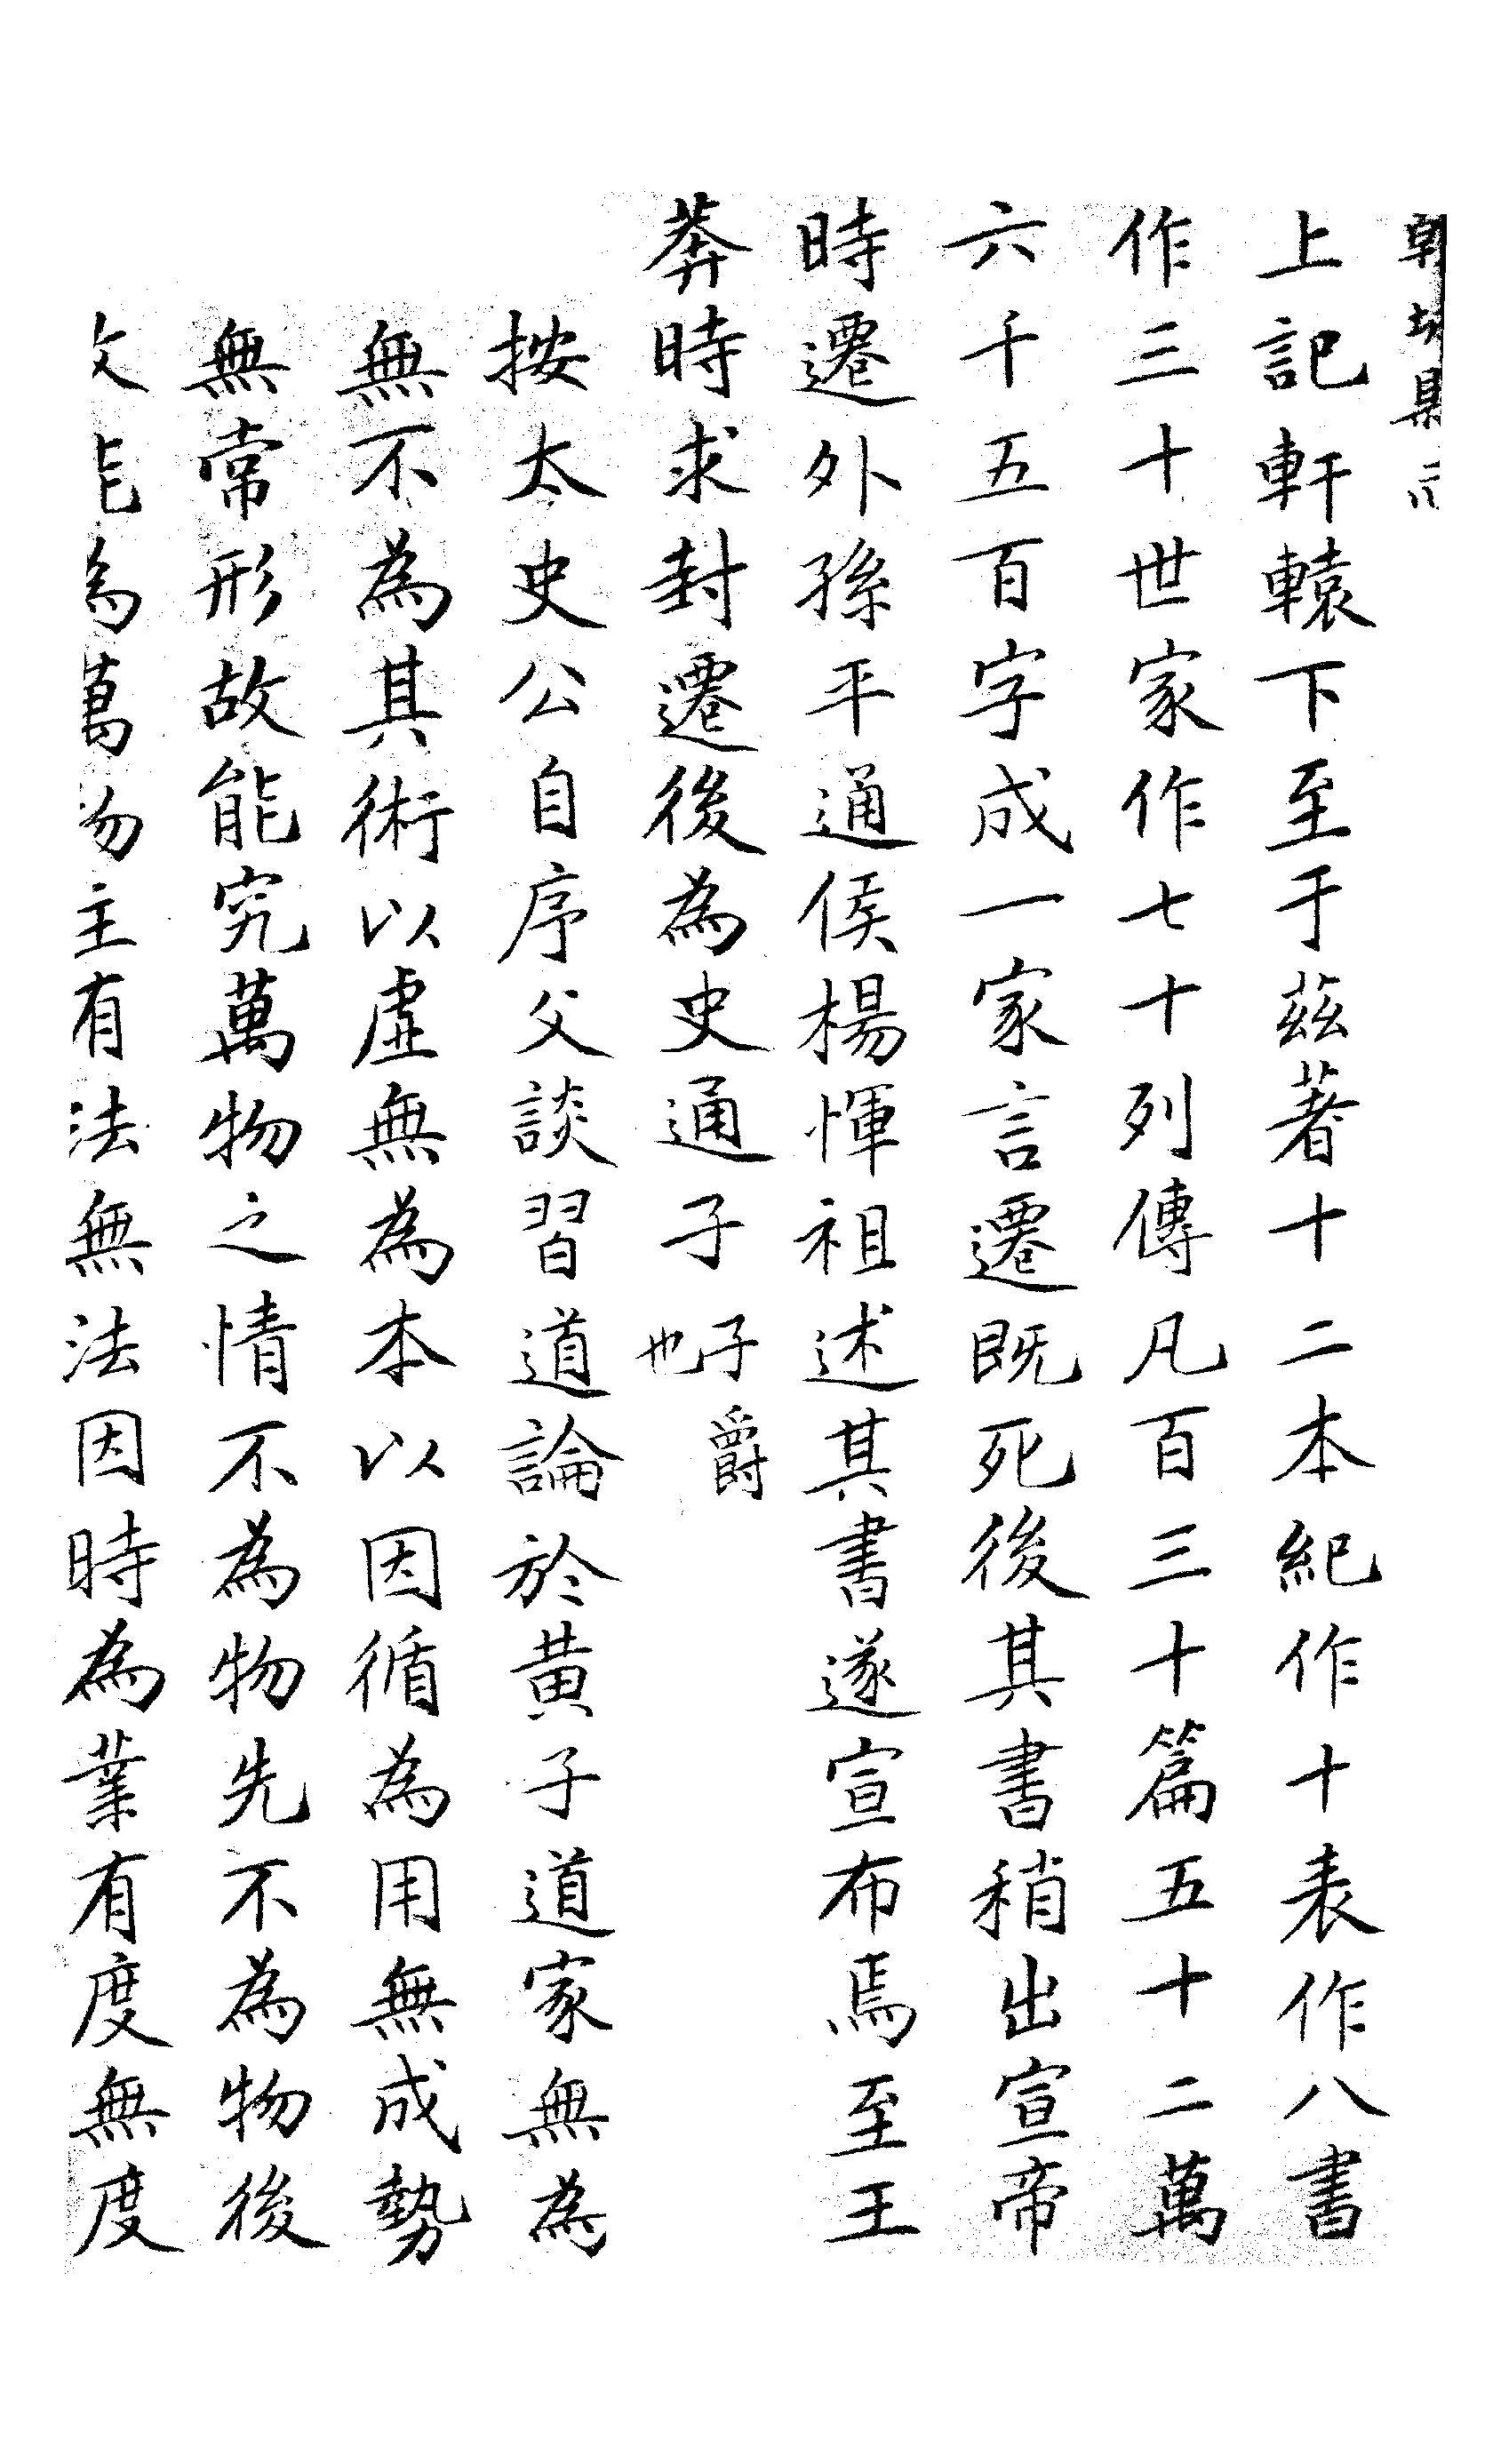 上記軒轅下至于茲著十二本紀作十表作八書
作三十世家作七十列傳凡百三十篇五十二萬
六千五百字成一家言遷既死後其書稍出宣帝
時遷外孫平通侯楊惲祖述其書遂宣布焉至王
莽時求封遷後為史通子子爵也
按太史公自序父談習道論於黃子道家無為
無不為其術以虛無為本以因循為用無成勢
無常形故能究萬物之情不為物先不為物後
故能為萬物主有法無法因時為業有度無度